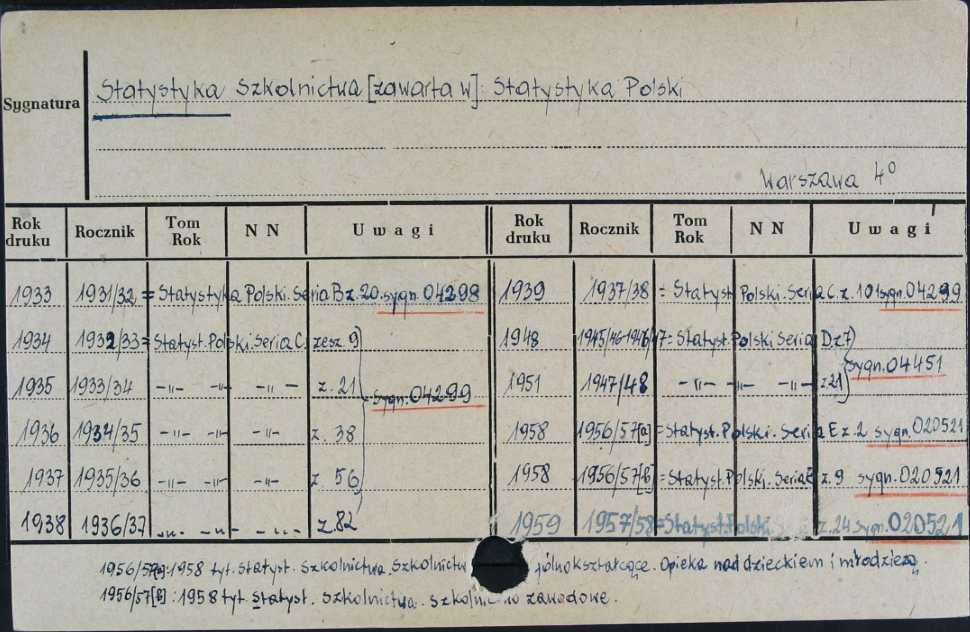 Sygnatura
Statystyka Szkolnictwa [zawarta w]: Statystyka Polski
Warszawa 4°
Rok druku Rocznik Tom Rok N N Uwagi Rok druku Rocznik Tom Rok N N Uwagi
1933 1931/32 = Statystyka Polski. Seria B z. 20. sygn. 04298
1934 1932/33 = Statyst. Polski. Seria C. zesz 9
1935 1933/34 -"- -"- -"- z. 21 sygn. 04299
1936 1934/35 -"- -"- -"- z. 38
1937 1935/36 -"- -"- -"- z. 56
1938 1936/37 -"- -"- -"- z. 82
1939 1937/38 = Statyst. Polski. Seria C. z. 101 sygn. 04299
1948 1945/46-1946/47 = Statyst. Polski. Seria D z 7
1951 1947/48 -"- -"- -"- z. 21 sygn. 04451
1958 1956/57[a] = Statyst. Polski. Seria E z. 2 sygn. 020521
1958 1956/57[b] = Statyst. Polski. Seria E z. 9 sygn. 020521
1959 1957/58 = Statyst. Polski z. 24 sygn. 020521
1956/57[a]: 1958 tyt. Statyst. Szkolnictwa. Szkolnictw ólnokształcące. Opieka nad dzieckiem i młodzieżą.
1956/57[b]: 1958 tyt. Statyst. Szkolnictwa. Szkolnictwo zawodowe.